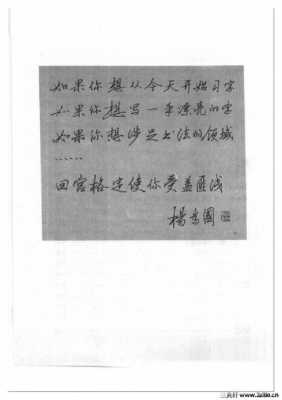 如果你想从今天开始习字
如果你想写一手漂亮的字
如果你想涉足书法的领域
……
回宫格定使你受益匪浅
杨为国